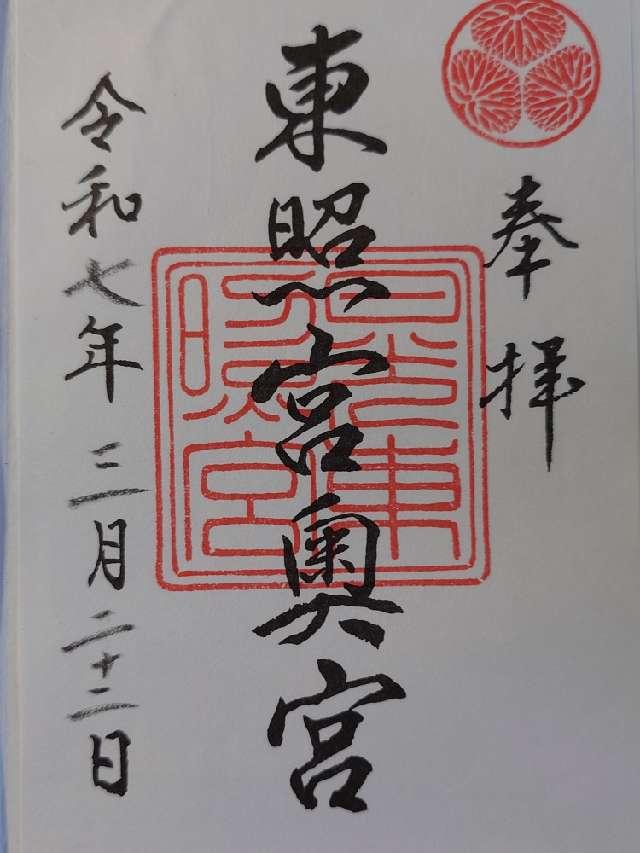 奉拝
東照宮奥宮
日光東照宮
令和七年三月二十二日